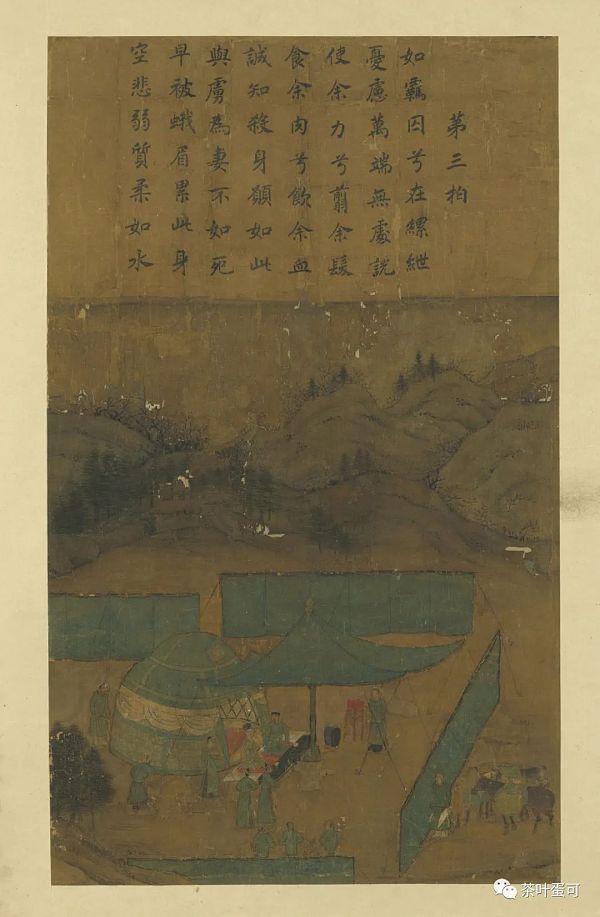 第三拍
如羈囚兮在縲絏
憂慮萬端無處說
使余力兮翦余髮
食余肉兮飲余血
誠知殺身願如此
與虜為妻不如死
早被蛾眉累此身
空悲弱質柔如水
茶叶蛋可